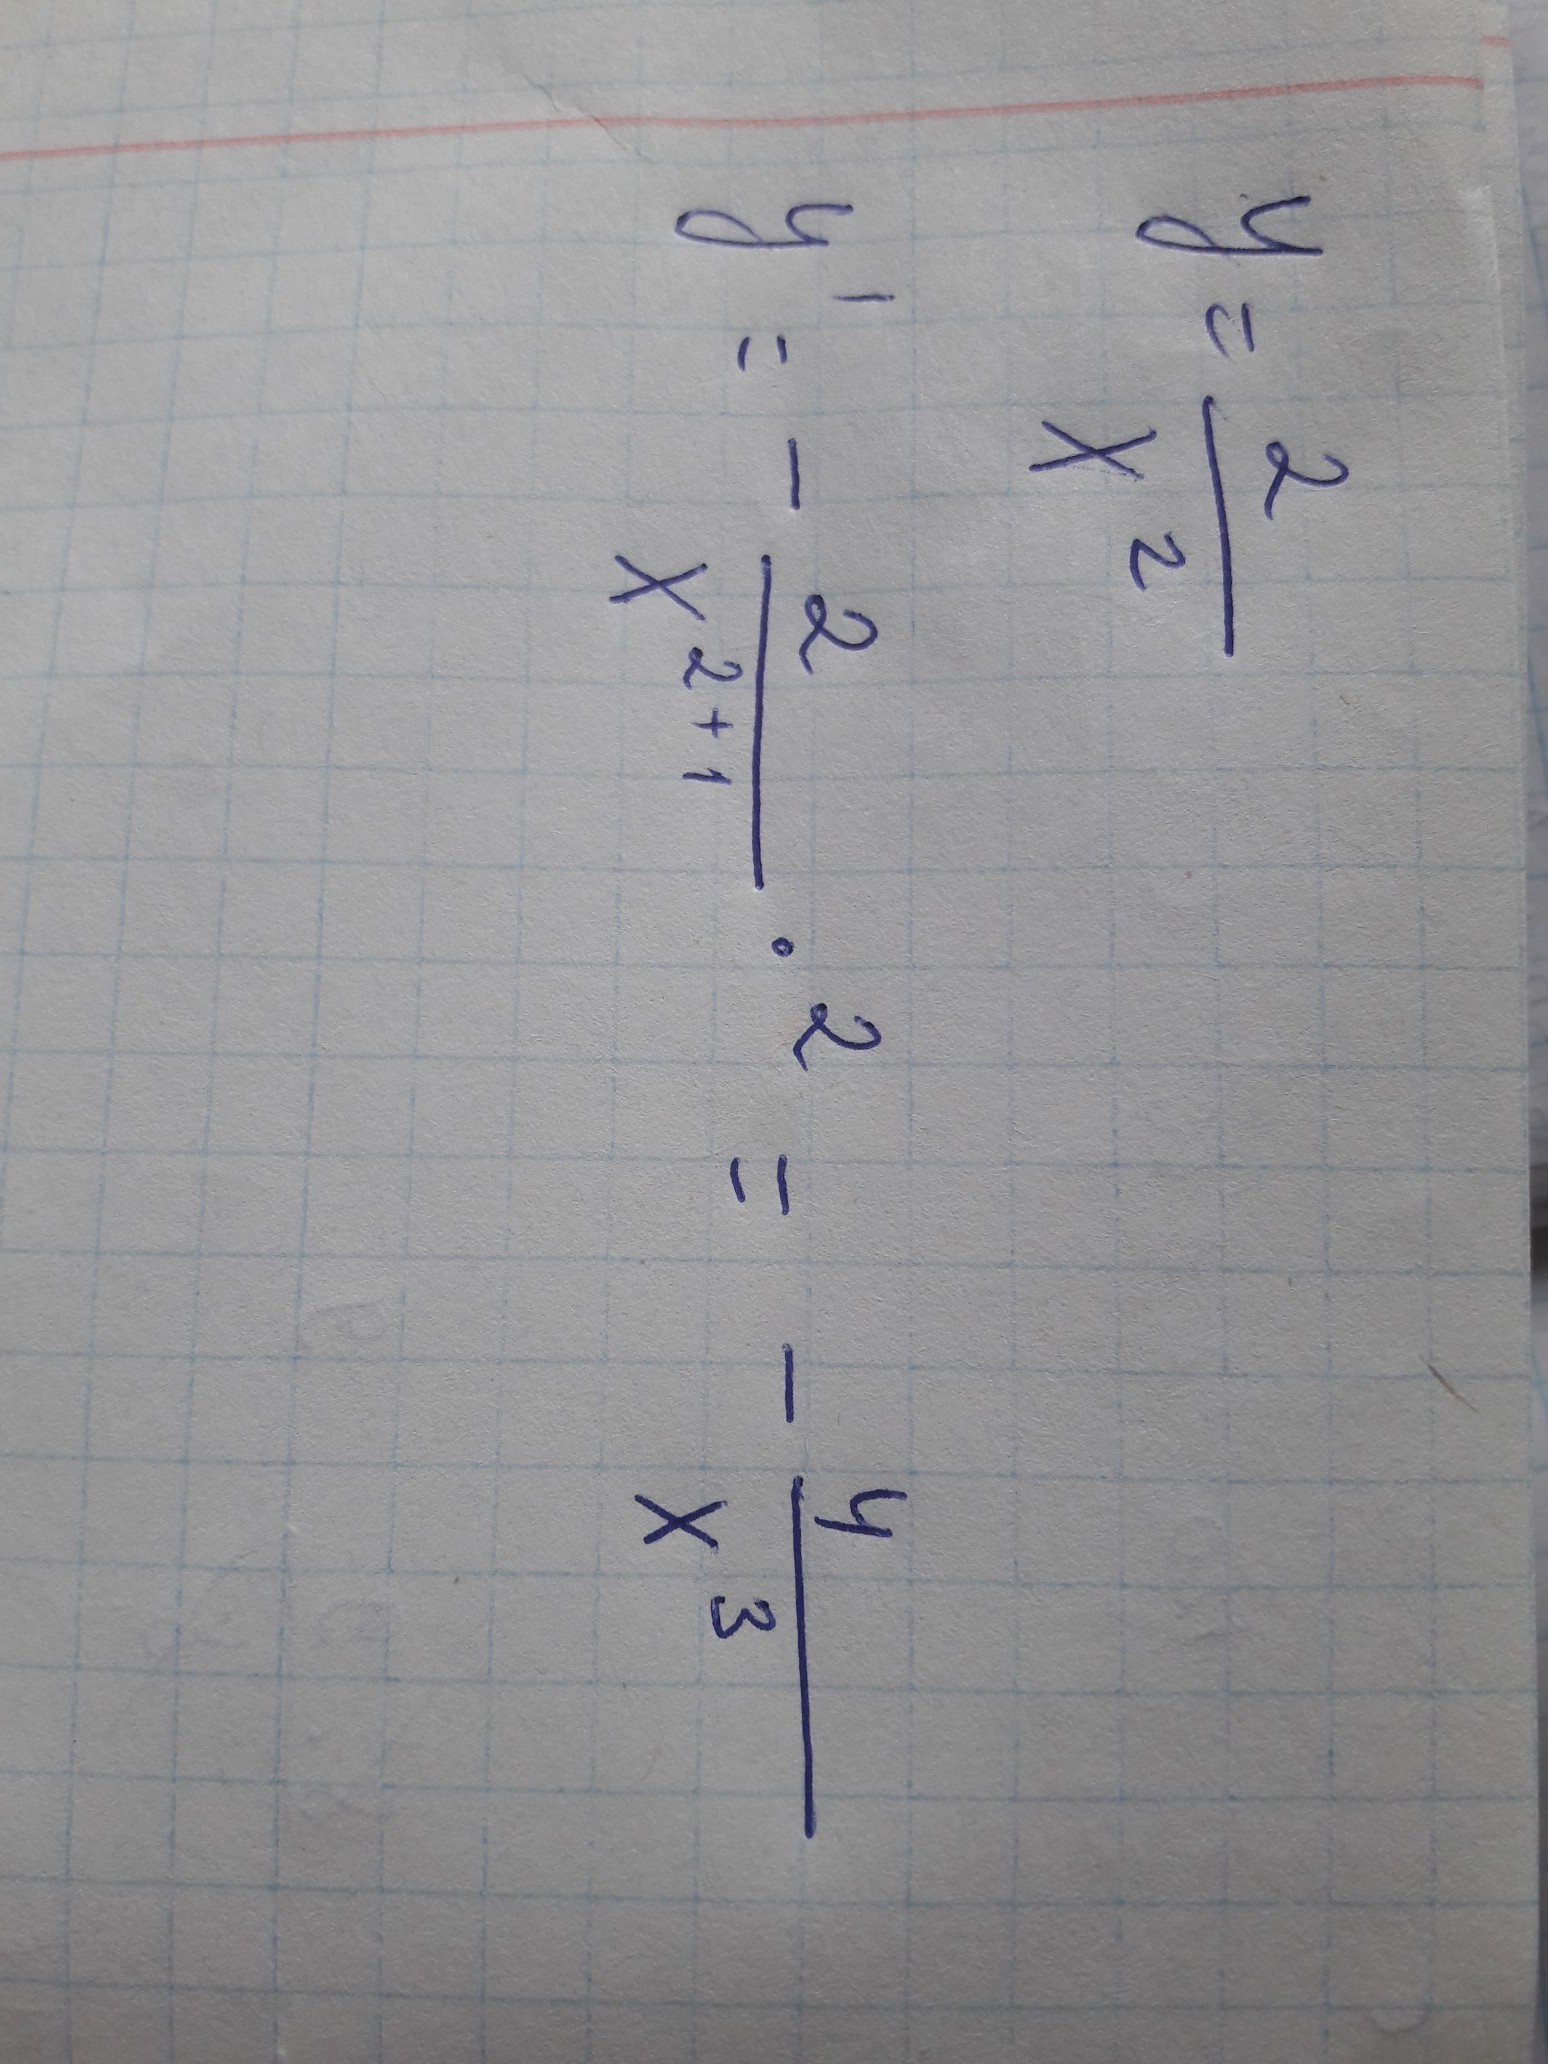 y = 2/x^2
y' = - 2/x^(2+1) · 2 = - 4/x^3